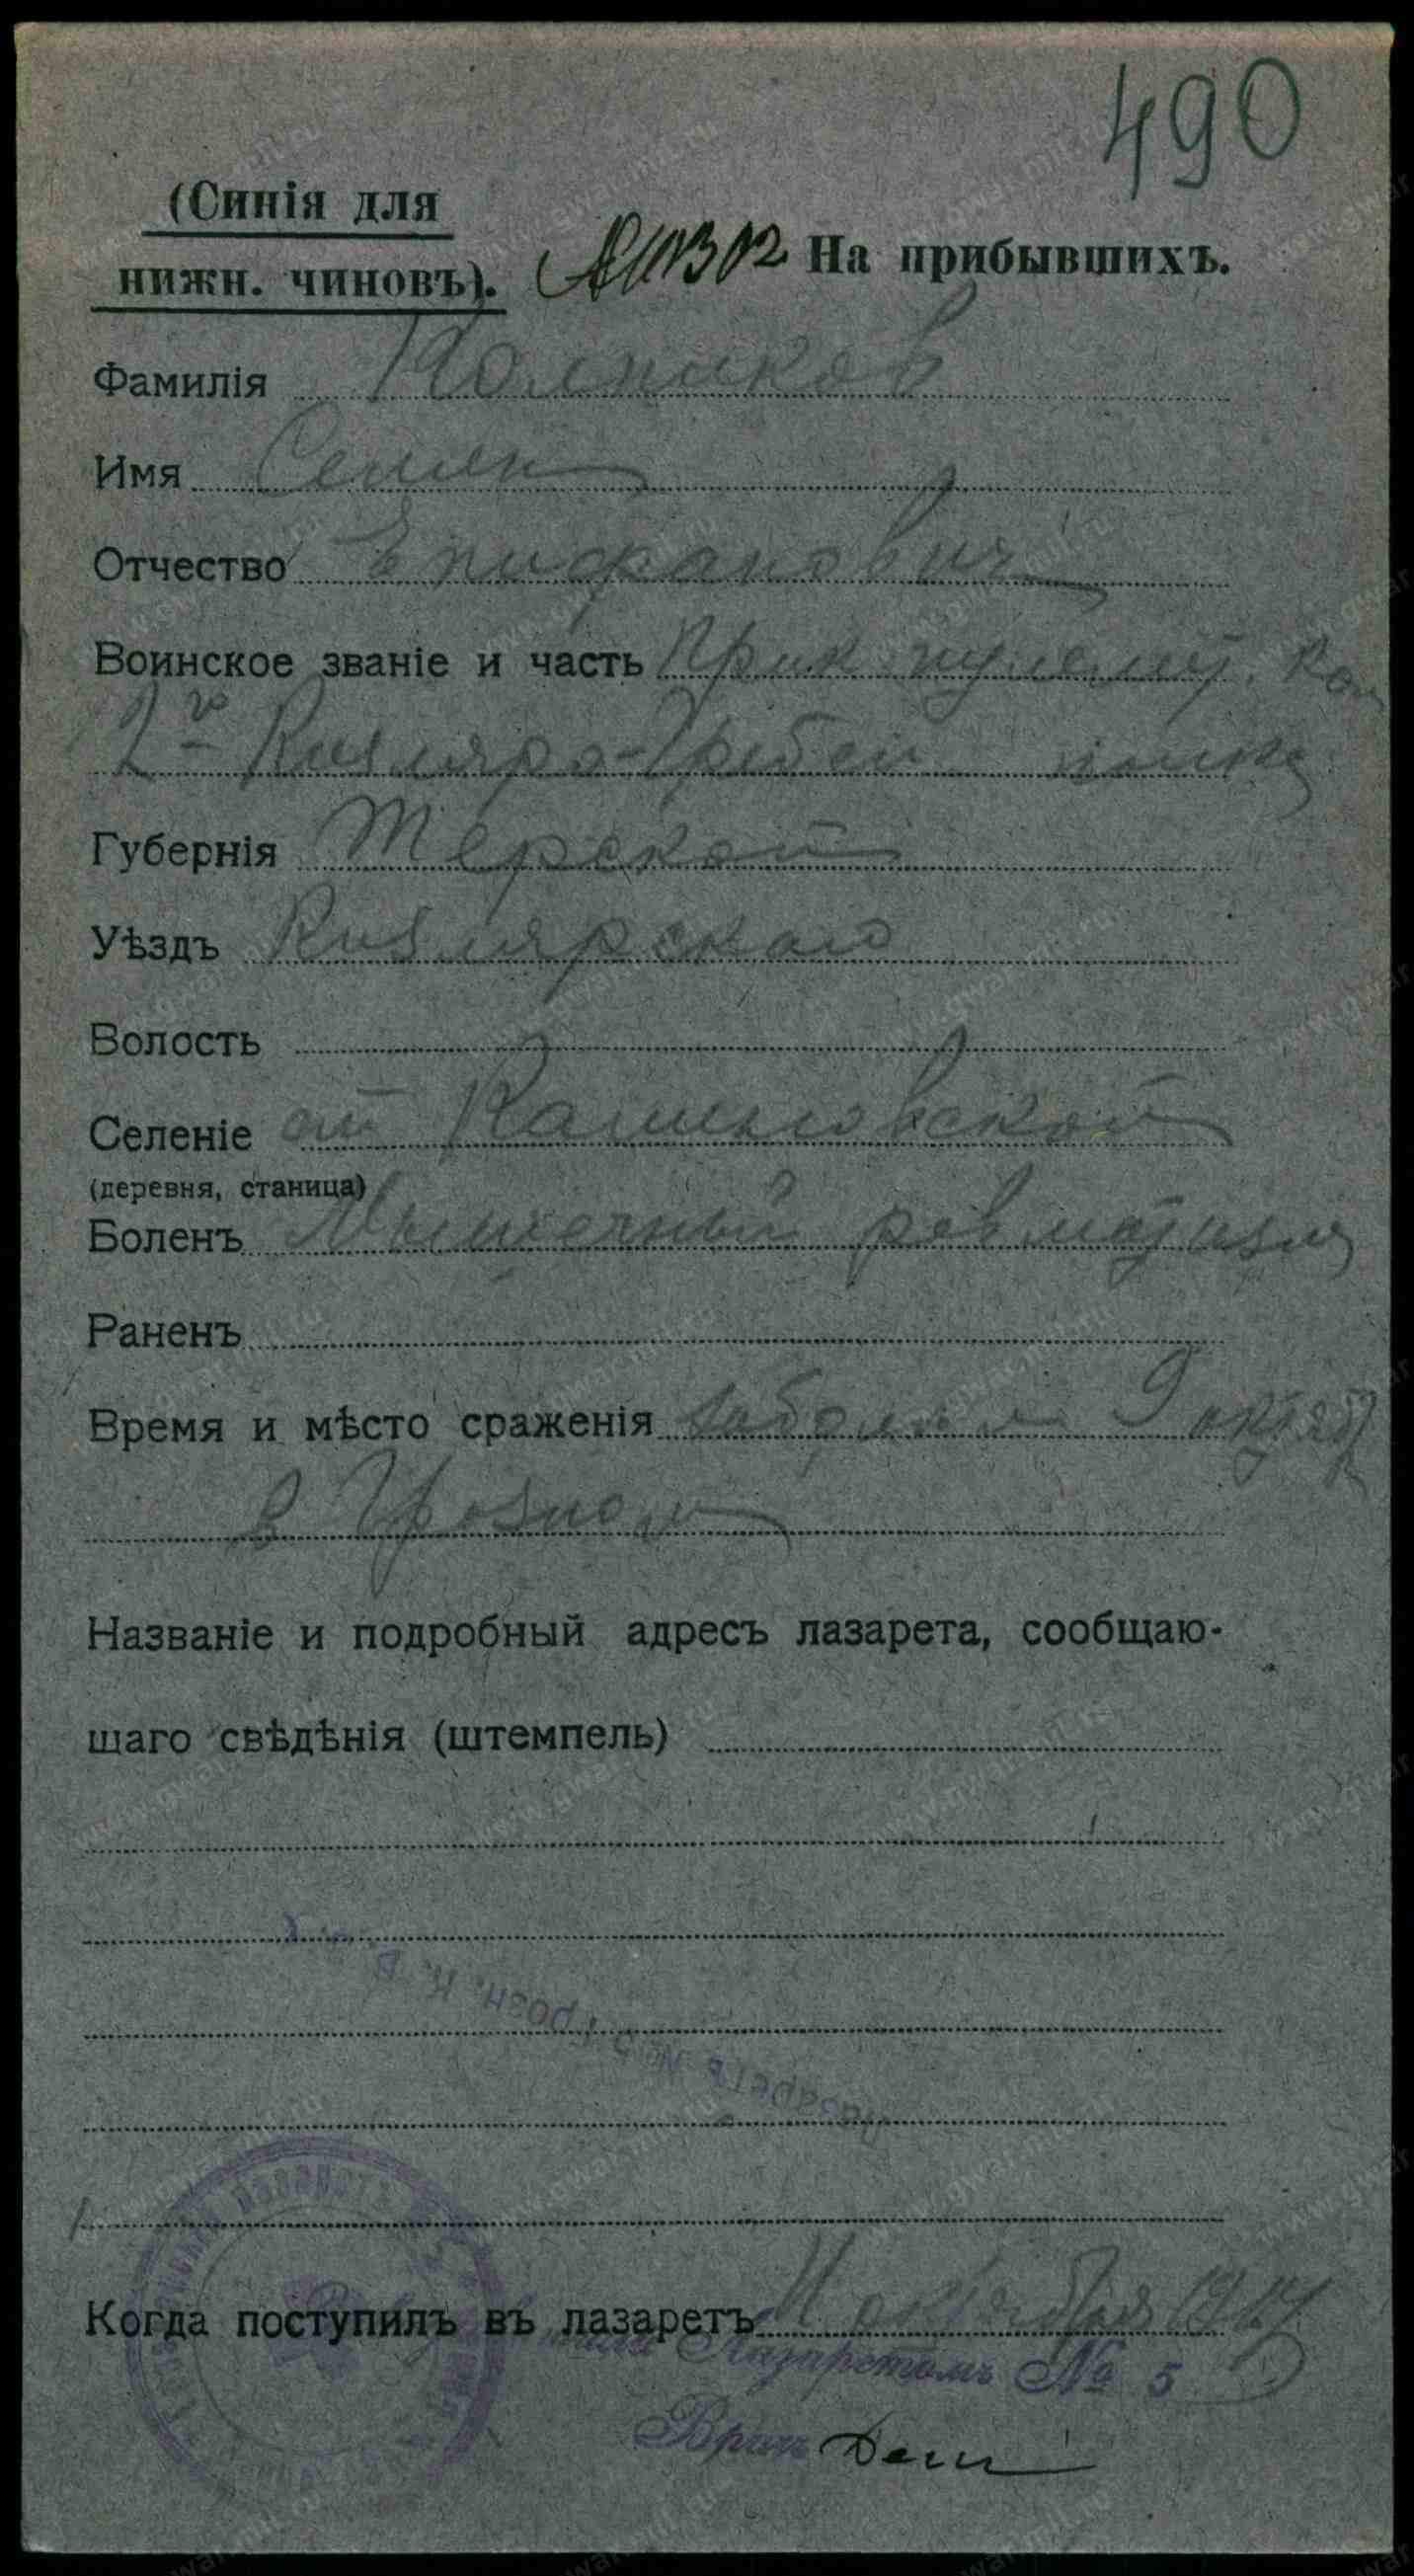 490
(Синія для
нижн. чиновъ).
На прибывшихъ.
Фамилія
Имя Семен
Отчество Епифанович
Воинское званіе и часть Прик пулемет. ком
2го Кизляро-Гребен полка
Губернія Терской
Уѣздъ Кизлярскаго
Волость
Селеніе ст Калиновской
(деревня, станица)
Боленъ Мышечный ревматизм
Раненъ
Время и мѣсто сраженія заболел 9 октяб
в Грозном
Названіе и подробный адресъ лазарета, сообщаю-
щаго свѣдѣнія (штемпель)
Лазаретъ № 5 Грозн. К.
Когда поступилъ въ лазаретъ 11 октября 1917
Лазаретомъ № 5
Врачъ